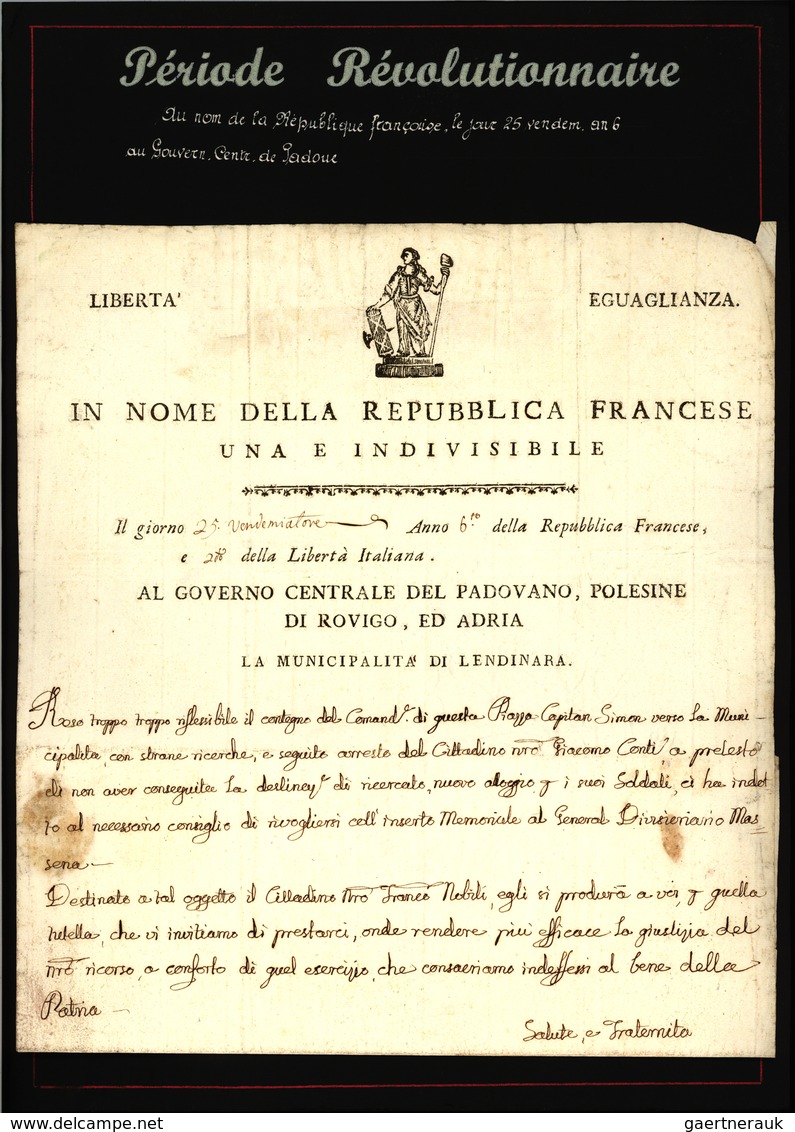 Période Révolutionnaire
Au nom de la République françoise, le jour 25 vendem. an 6
au Gouvern. Centr. de Padoue
LIBERTA'
EGUAGLIANZA.
IN NOME DELLA REPUBBLICA FRANCESE
UNA E INDIVISIBILE
Il giorno 25. Vendemiatore Anno 6.to della Repubblica Francese,
e 2do della Libertà Italiana.
AL GOVERNO CENTRALE DEL PADOVANO, POLESINE
DI ROVIGO, ED ADRIA
LA MUNICIPALITA' DI LENDINARA.
Reso troppo troppo il contegno del Comand.e di questa Piazza Capitan Simon verso la Muni-
cipalità, con strane ricerche, e seguito arresto del Cittadino nro Giacomo Conti, a pretesto
di non aver conseguita la di ricercato, nuovo aloggio i suoi Soldati, ci ha indot
to al necessario consiglio di rivogliersi coll' inserto Memoriale al General Divisionario Mas
sena —
Destinato a tal oggetto il Cittadino Nro Franco Nobili, egli si produrà a voi, quella
tutella, che vi invitiamo di prestarci, onde rendere più efficace la giustizia del
nro ricorso, a conforto di quel esercizio, che consacriamo indefessi al bene della
Patria —
Salute, e Fraternita
delcampe.net
gaertnerauk